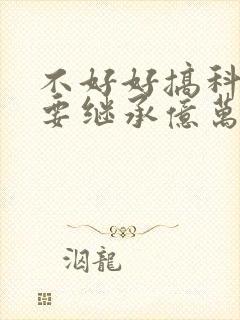 不好好搞科
要继承億萬
洇龍